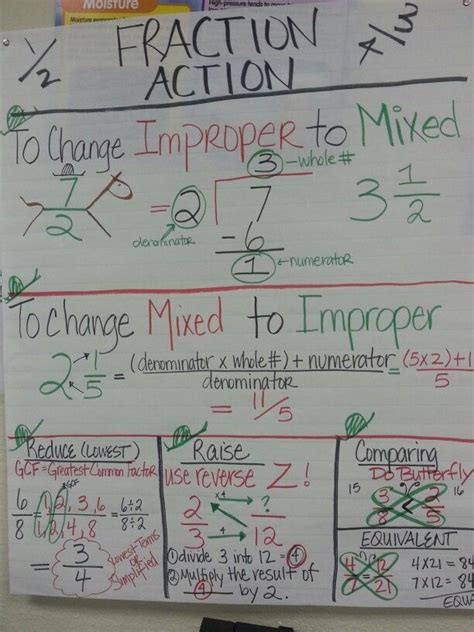 Moisture
1/2
FRACTION
ACTION
4/3
To Change IMPROPER to Mixed
7/2 = 2 7 3 -whole# 3 1/2
denominator
-6
1 ←numerator
To Change Mixed to Improper
2 1/5 = (denominator x whole#) + numerator / denominator = (5x2)+1 / 5
= 11/5
Reduce (LOWEST)
GCF = Greatest Common Factor
GCF
6/8 = 1,2,3,6 / 1,2,4,8 = 6÷2 / 8÷2
3/4
Lowest Terms
or
Simplified
Raise
use reverse Z!
2/3 x4 ?/12
① divide 3 into 12 = ④
② Multiply the result of
④ by 2.
Comparing
Do Butterfly
15 3/8 < 2/5 16
EQUIVALENT
4/7 = 12/21
4x21 = 84
7x12 = 84